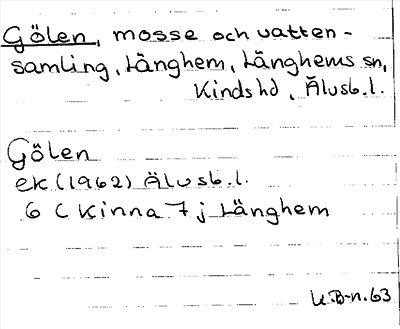 Gölen, mosse och vatten-
samling, Länghem, Länghems sn,
Kinds hd, Älvsb. l.
Gölen
ek (1962) Älvsb. l.
6 C Kinna 7 j Länghem
U.B-n. 63